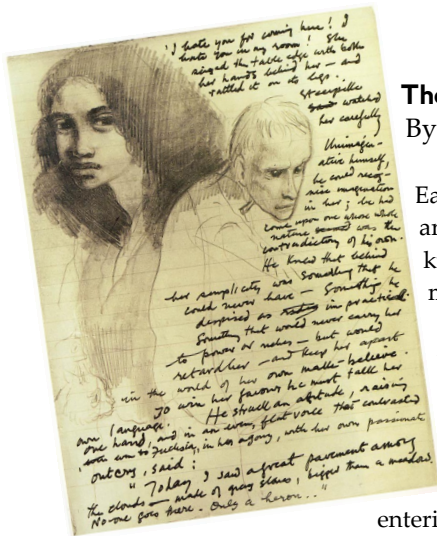 'I hate you for coming here! I
hate you in my room! She
seized the table edge with both
her hands behind her – and
rattled it on its legs.
Steerpike
saw watched
her carefully
Unimagin-
ative himself,
he could recog-
nise imagination
in her; he had
come upon one whose whole
nature was the
contradiction of his own.
He knew that behind
her simplicity was something that he
could never have – Something he
despised as impractical.
Something that would never carry her
to power or riches – but would
retard her – and keep her apart
in the world of her own make-believe.
To win her favour he must talk her
own language. He struck an attitude, raising
one hand, and in an even, flat voice that contrasted
, even to Fuchsia, in her agony, with her own passionate
outcry, said:
"Today I saw a great pavement among
the clouds – made of grey stones, bigger than a meadow.
No-one goes there. Only a heron.."
The
By
Ea
ar
k
enteri